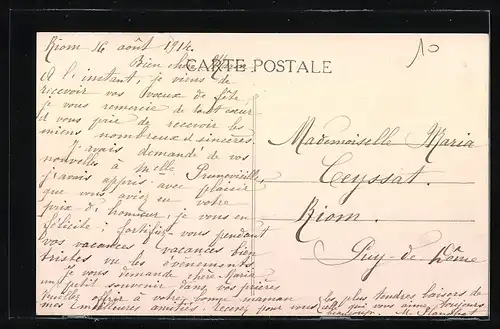 10
Riom 16 août 1914.
Bien chère Maria
CARTE POSTALE
A l'instant, je viens de
recevoir vos vœux de fête,
je vous remercie de tout cœur
et vous prie de recevoir les
miens nombreux et sincères.
J'avais demandé de vos
nouvelles à Melle
j'avais appris avec plaisir
que vous aviez eu votre
prix d'honneur, je vous en
félicite ; fortifiez-vous pendant
vos vacances, vacances bien
tristes vu les événements.
Je vous demande chère Maria
un petit souvenir dans vos prières
Veuillez offrir à votre bonne maman
mes meilleures amitiés, recevez pour vous
les plus tendres baisers de
celle qui vous aime toujours
beaucoup. M.
Mademoiselle Maria
Ceyssat.
Riom.
Puy-de-Dôme